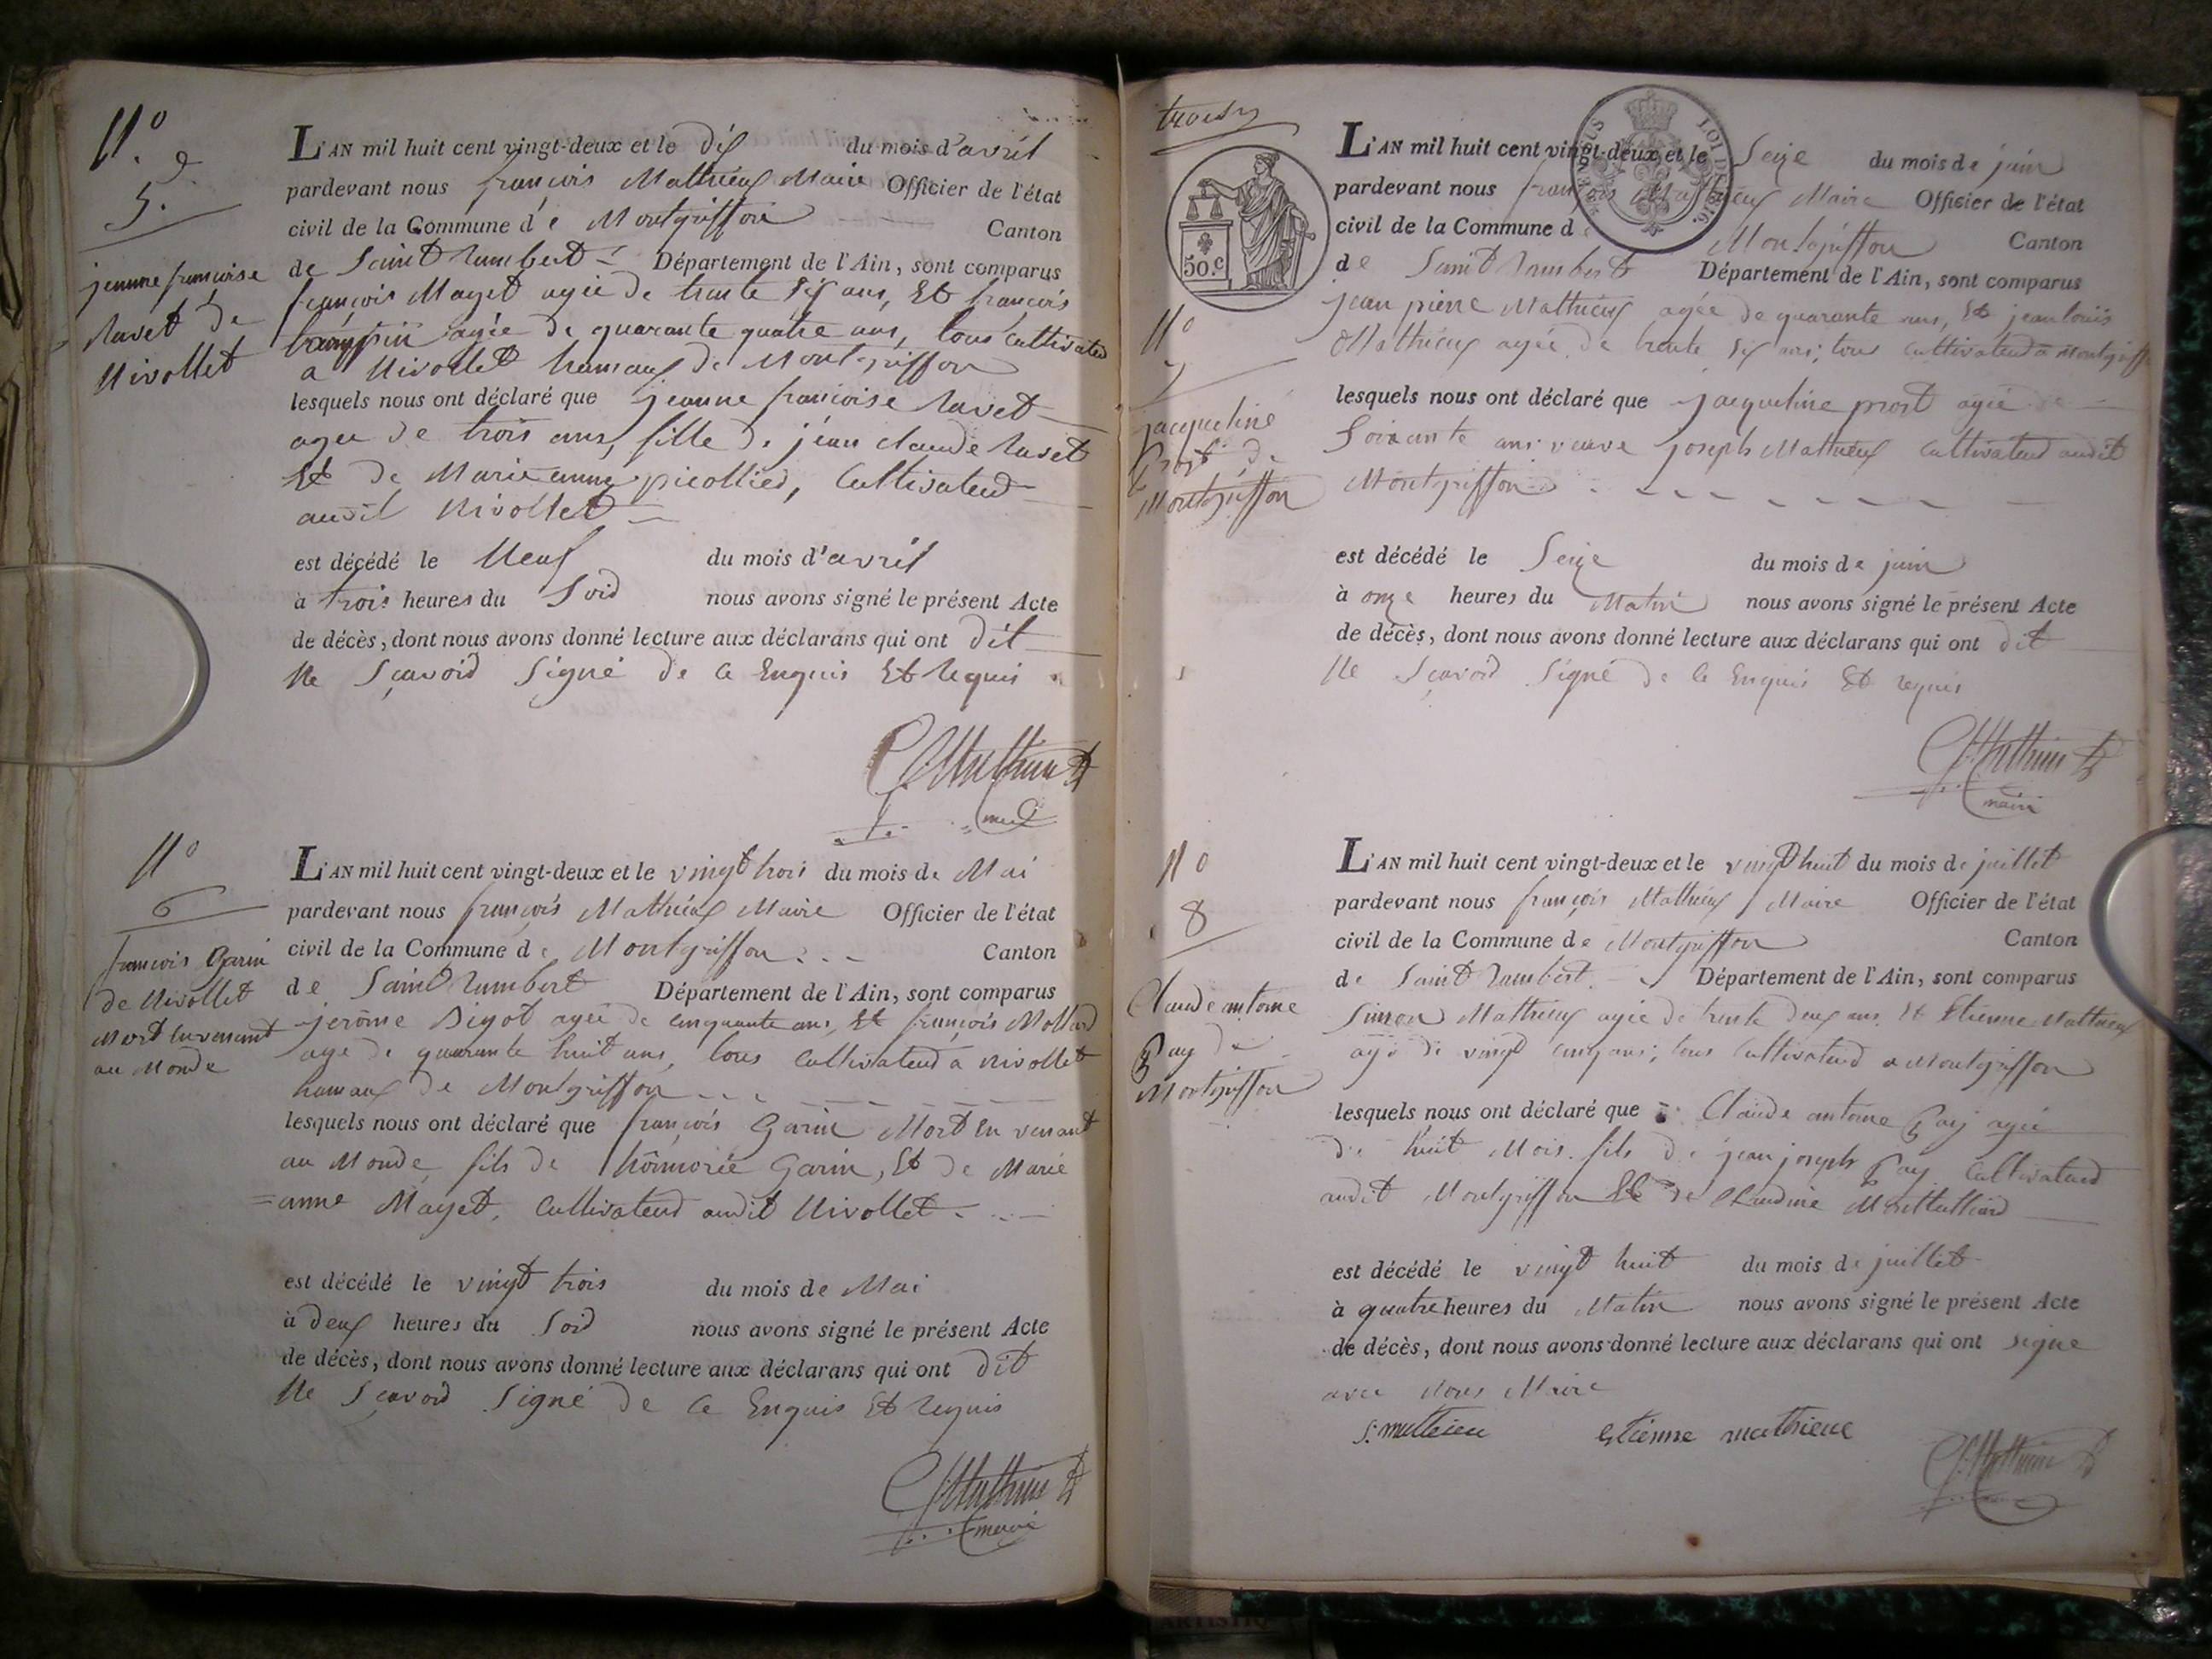 N.º
5.
jeanne françoise
Ravet de
Nivollet
L'AN mil huit cent vingt-deux et le dix du mois d'avril
pardevant nous françois Mathieux Maire Officier de l'état
civil de la Commune de Montgriffon Canton
de Saint Rambert Département de l'Ain, sont comparus
françois Mayet agée de trente six ans, Et françois
agée de quarante quatre ans, tous Cultivateur
a Nivollet hameaux de Montgriffon
lesquels nous ont déclaré que jeanne francoise Ravet
agee de trois ans, fille de jean claude Ravet
Et de Marie anne picollied, Cultivateur
audit Nivollet
est décédé le Neuf du mois d'avril
à trois heures du Soir nous avons signé le présent Acte
de décès, dont nous avons donné lecture aux déclarans qui ont dit
Ne Sçavoir Signé de ce Enquis Et Requis
N.º
6
francois Garin
de Nivollet
Mort En venant
au Monde
L'AN mil huit cent vingt-deux et le vingt trois du mois de Mai
pardevant nous françois Mathieux Maire Officier de l'état
civil de la Commune de Montgriffon Canton
de Saint Rambert Département de l'Ain, sont comparus
jerôme agée de cinquante ans, Et françois Mollard
age de quarante huit ans, tous Cultivateur à Nivollet
hameaux de Montgriffon
lesquels nous ont déclaré que françois Garin Mort En venant
au Monde fils de hônnorée Garin, Et de Marie
=anne Mayet, Cultivateur audit Nivollet
est décédé le vingt trois du mois de Mai
à deux heures du Soir nous avons signé le présent Acte
de décès, dont nous avons donné lecture aux déclarans qui ont dit
Ne Sçavoir Signé de ce Enquis Et Requis
maire
50.c
Nº
7
jacqueline
Prost de
Montgriffon
L'AN mil huit cent vingt-deux et le Seize du mois de juin
pardevant nous françois Mathieux Maire Officier de l'état
civil de la Commune de Montgriffon Canton
de Saint Rambert Département de l'Ain, sont comparus
jean pierre Mathieux agée de quarante ans, Et jean louis
Mathieux agée de trente six ans; tous Cultivateur a Montgriffon
lesquels nous ont déclaré que jacqueline prost agée de
Soixante ans veuve joseph Mathieux Cultivateur audit
Montgriffon
est décédé le Seize du mois de juin
à onze heures du Matin nous avons signé le présent Acte
de décès, dont nous avons donné lecture aux déclarans qui ont dit
Ne Sçavoir Signé de ce Enquis Et requis
maire
Nº
8
Claude antoine
Pay de
Montgriffon
L'AN mil huit cent vingt-deux et le vingt huit du mois de juillet
pardevant nous françois Mathieux Maire Officier de l'état
civil de la Commune de Montgriffon Canton
de Saint Rambert Département de l'Ain, sont comparus
Simon Mathieux agée de trente deux ans Et Etienne Mathieux
agé de vingt cinq ans; tous Cultivateur a Montgriffon
lesquels nous ont déclaré que Claude antoine Pay agée
de huit Mois fils de jean joseph Pay Cultivateur
audit Montgriffon Et de Claudine
est décédé le vingt huit du mois de juillet
à quatre heures du Matin nous avons signé le présent Acte
de décès, dont nous avons donné lecture aux déclarans qui ont signe
avec Nous Maire
s: mathieu etienne mathieux